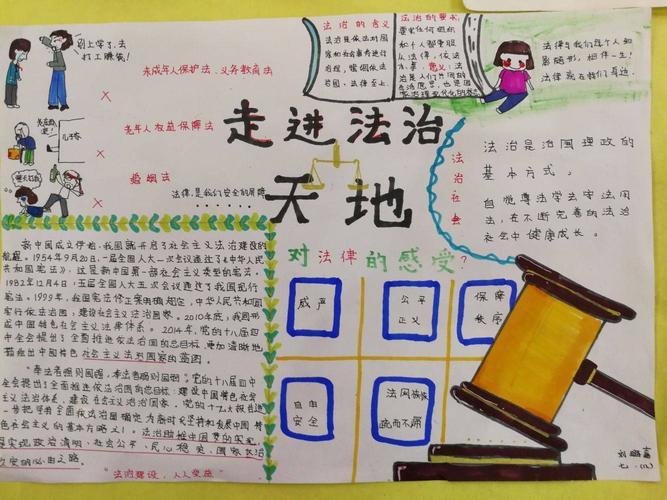 别上学了,去
打工赚钱!
未成年人保护法、义务教育法
老年人权益保障法
婚姻法
法律是我们安全的屏障
法治的含义
法治是依法对国
家和社会事务进行
治理,强调依法
治国、法律至上
法治的要求
要求任何组织
和个人都要服
从法律,依法
治理现代化的
法律与我们每个人如
影随形,相伴一生!
法律就在我们身边
走进法治
天地
法治社会
法治是治国理政的
基本方式。
自觉尊法学法守法用
法,在不断完善的法治
社会中健康成长。
对法律的感受?
威严
公平
正义
保障
秩序
自由
安全
法网恢恢
疏而不漏
新中国成立伊始,我国就开启了社会主义法治建设的
航程。1954年9月20日,一届全国人大一次会议通过了《中华人民
共和国宪法》,这是新中国第一部社会主义类型的宪法。
1982年12月4日,五届全国人大五次会议通过了我国现行
宪法。1999年,我国宪法修正案明确规定,中华人民共和国
实行依法治国,建设社会主义法治国家。2010年底,我国形
成中国特色社会主义法律体系。2014年,党的十八届四
中全会提出了全面推进依法治国的总目标,更加清晰地
描绘出中国特色社会主义法治国家的蓝图。
“奉法者强则国强,奉法者弱则国弱”。党的十八届四中
全会提出了全面推进依法治国的总目标:建设中国特色社会
主义法治体系,建设社会主义法治国家。党的十九大报告进
一步把坚持全面依法治国确定为新时代坚持和发展中国特
色社会主义的基本方略之一。法治助推中国梦的实现,
是实现政治清明、社会公平、民心稳定、国家长治
久安的必由之路。
“法治建设,人人受益”
七.(12)